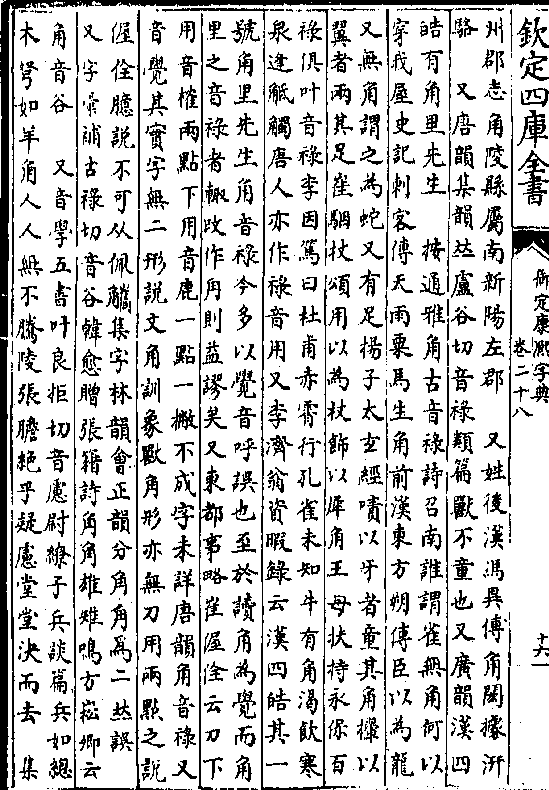 欽定四庫全書
御定康熙字典
卷二十八
十一
州郡志角陵縣屬南新陽左郡　又姓後漢馮異傳角閎據汧
駱　又唐韻集韻𠀤盧谷切音祿類篇獸不童也又廣韻漢四
皓有角里先生　按通雅角古音祿詩召南誰謂雀無角何以
穿我屋史記刺客傳天雨粟馬生角前漢東方朔傳臣以為龍
又無角謂之為蛇又有足揚子太玄經嘖以牙者童其角㩧以
翼者兩其足崔駰杖頌用以為杖飾以犀角王母扶持永保百
祿俱叶音祿李因篤曰杜甫赤霄行孔雀未知牛有角渴飲寒
泉逢觝觸唐人亦作祿音用又李濟翁資暇錄云漢四皓其一
號角里先生角音祿今多以覺音呼誤也至於讀角為覺而角
里之音祿者輙改作甪則益謬矣又東都事略崔偓佺云刀下
用音㩁兩點下用音鹿一點一撇不成字未詳唐韻角音祿又
音覺其實字無二形說文角訓象獸角形亦無刀用兩點之說
偓佺臆說不可从佩觿集字林韻會正韻分角甪為二𠀤誤
又字彙補古祿切音谷韓愈贈張籍詩角角雄雉鳴方崧卿云
角音谷　又音學五書叶良拒切音慮尉繚子兵談篇兵如總
木弩如羊角人人無不騰陵張膽絕乎疑慮堂堂決而去　集